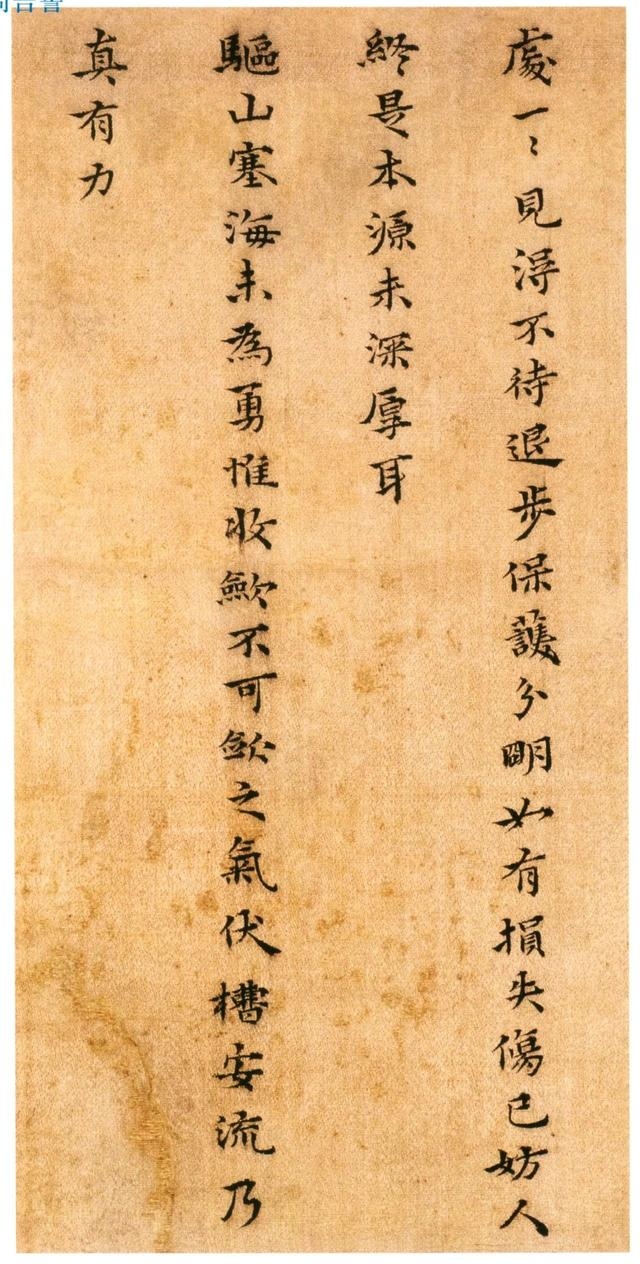 處一〻見得不待退步保護分明如有損失傷已妨人
終是本源未深厚耳
驅山塞海未為勇惟收歛不可歛之氣伏槽安流乃
真有力